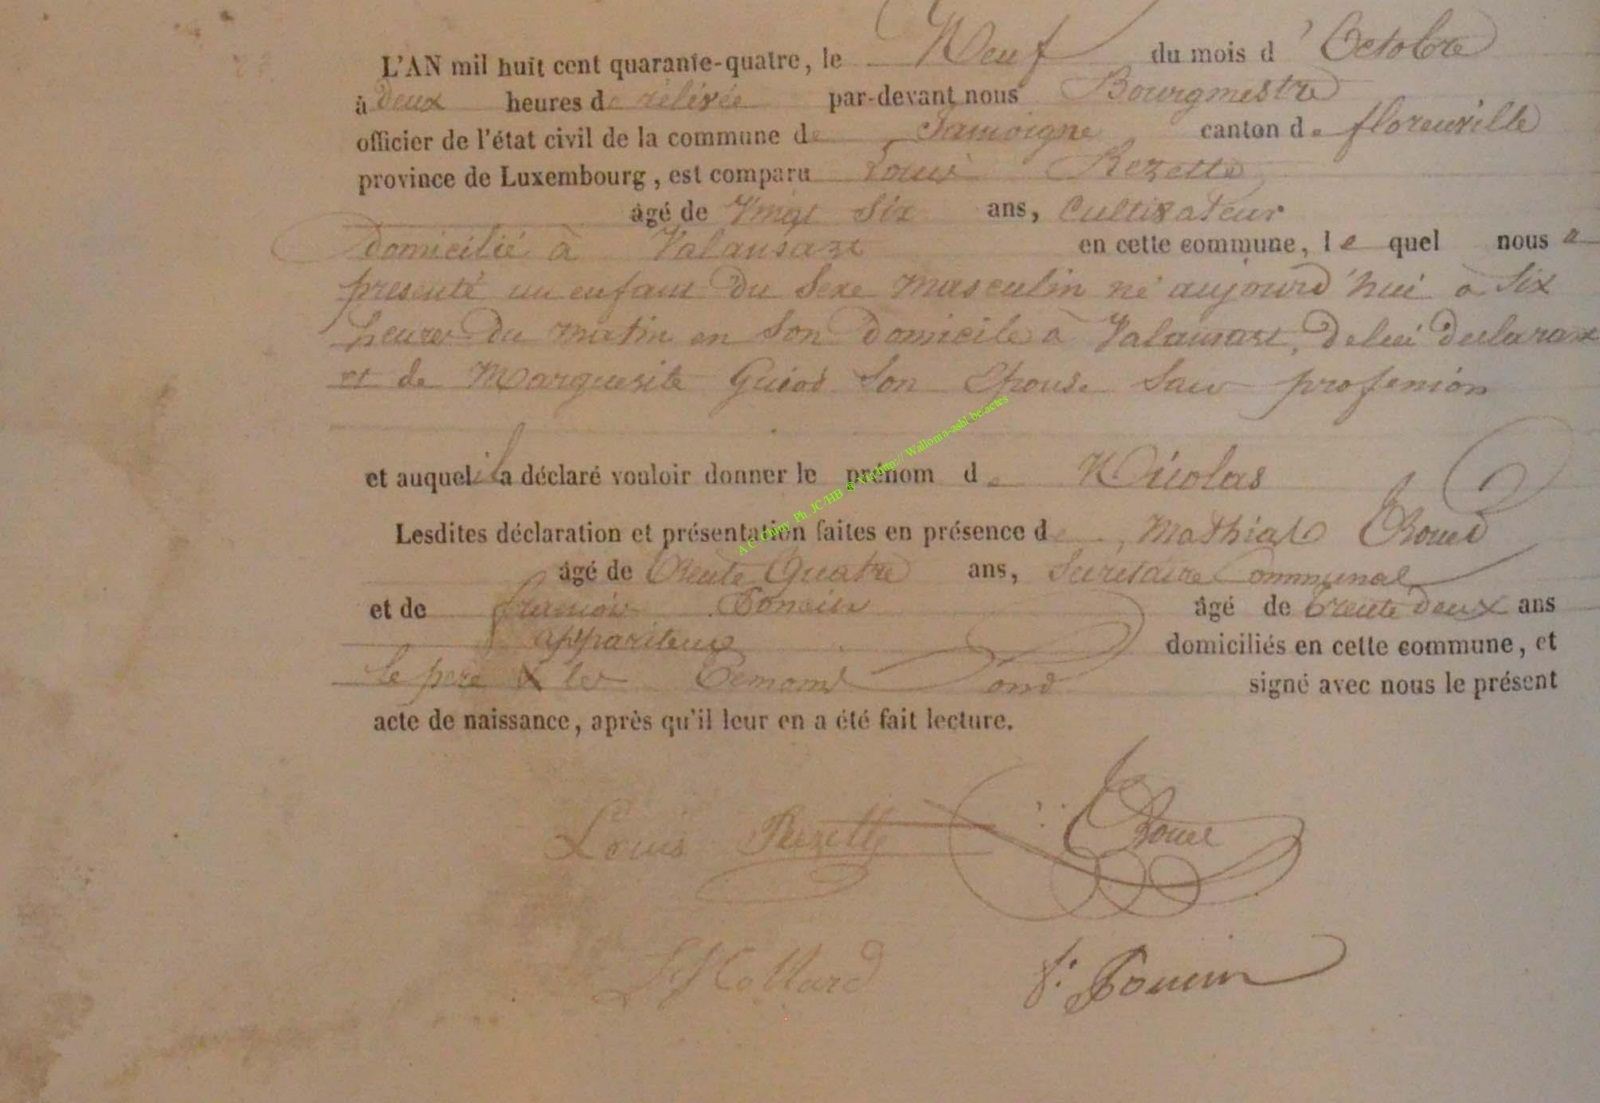 L'AN mil huit cent quarante-quatre, le Neuf du mois d'Octobre
à deux heures de rélévée par-devant nous Bourgmestre
officier de l'état civil de la commune de Jamoigne canton de florenville
province de Luxembourg, est comparu Louis Rezette
âgé de Vingt Six ans, Cultivateur
domicilié à Valansart en cette commune, le quel nous a
presenté un enfant du Sexe Masculin né aujourd'hui à Six
heures du matin en son domicile à Valansart, de lui déclarant
et de Marguerite Guiot Son Epouse Sans profession
et auquel il a déclaré vouloir donner le prénom de Nicolas
Lesdites déclaration et présentation faites en présence de Mathias
âgé de Trente Quatre ans, Secrétaire Communal
et de françois Poncin âgé de trente deux ans
appariteur domiciliés en cette commune, et
le père & les Témoins ont signé avec nous le présent
acte de naissance, après qu'il leur en a été fait lecture.
Louis Rezette
Collard f. Poncin